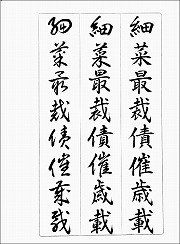 細菜最裁債催歳載
細菜最裁債催歳載
細菜最裁債催歳載